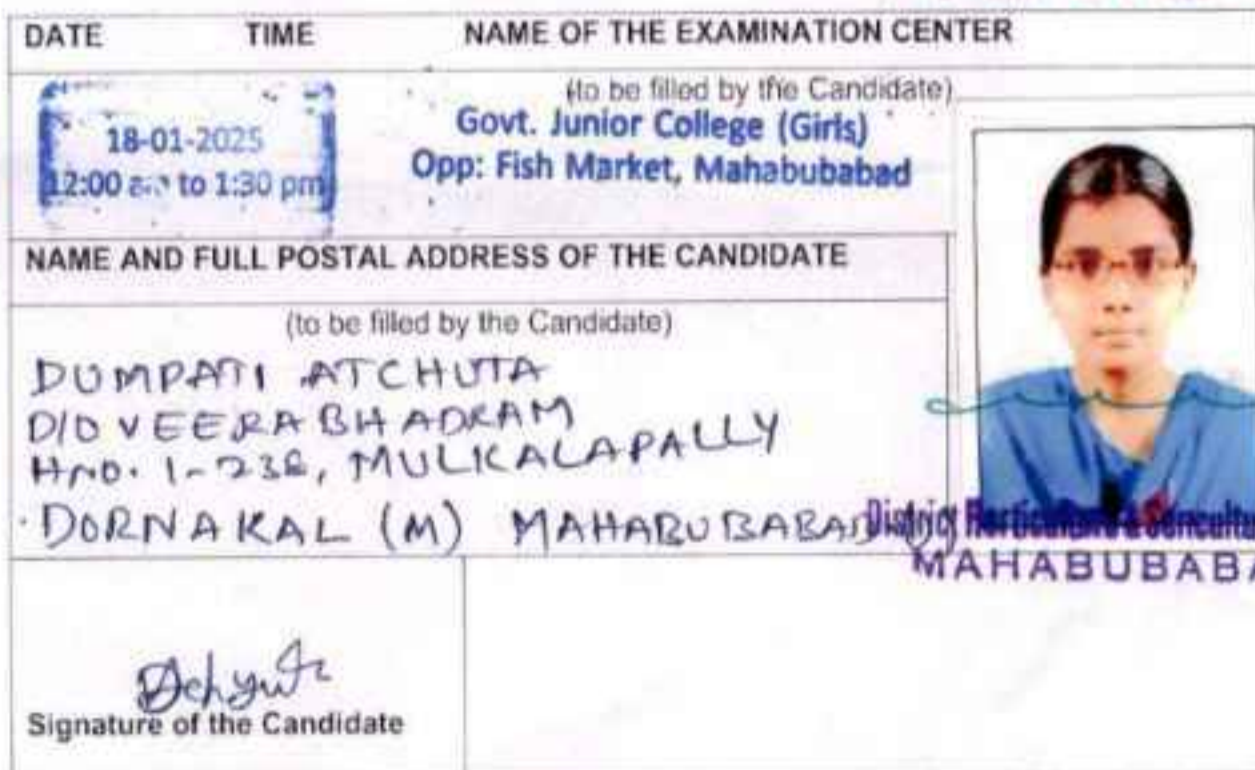 DATE TIME NAME OF THE EXAMINATION CENTER
(to be filled by the Candidate)
18-01-2025
12:00 to 1:30 pm
Govt. Junior College (Girls)
Opp: Fish Market, Mahabubabad
NAME AND FULL POSTAL ADDRESS OF THE CANDIDATE
(to be filled by the Candidate)
DUMPATI ATCHUTA
D/O VEERABHADRAM
HNO. 1-238, MULKALAPALLY
DORNAKAL (M) MAHABUBABAD
District
MAHABUBABA
Signature of the Candidate